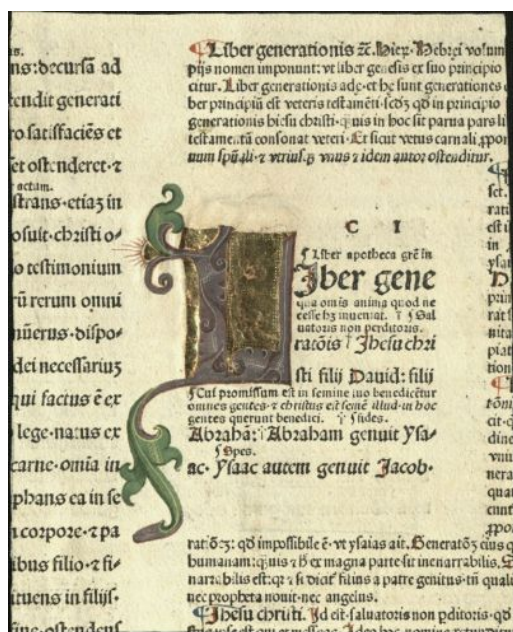 ns.
ns:decursā ad
tendit generati
ro satisfaciēs et
et ostenderet·⁊
actum.
strans·etiaʒ in
osuit·christi o⸗
o testimonium
rū rerum omni
nūerus·dispo⸗
dei necessariuʒ
qui factus ē ex
lege·natus ex
carne·omia in
phans ea in se
n corpore·⁊ pa
ibus filio·⁊ fi⸗
ituens in filijs·
sine·ostendens
¶Liber generationis ⁊c. Hebrei volum
pijs nomen imponunt: vt liber genesis ex suo principio
citur. Liber generationis ade·et he sunt generationes
ber principiū est veteris testamēti·sedʒ qd in principio
generationis hiesu christi·quis in hoc sit parua pars li
testamentū consonat veteri·Et sicut vetus carnali
vnus ⁊ idem autor ostenditur.
C I
¶Liber apotheca grē in
Iber gene
qua omīs anima quod ne
cesse hʒ inueniat. ¶Sal
uatoris non perditoris.
ratōis Jhesu chri
sti filij Dauid: filij
¶Cui promissum est in semine tuo benedicētur
omnes gentes·⁊ christus est semē illud·in hoc
gentes querunt benedici. ¶fides.
Abrahā: Abraham genuit Ysa⸗
¶Spes.
ac· Ysaac autem genuit Jacob·
ratōʒ: qd impossibile ē·vt ysaias ait. Generatōʒ eius q
humanam: quis ⁊ ex magna parte sit inenarrabilis.
narrabilis est: filius a patre genitus·tū quali
nec propheta nouit·nec angelus.
¶Jhesu christi. Id est·saluatoris non pditoris·qd
fet.
rati
est ū
in
ysa
D
prin
rat s
nita
piat
tion
tōni
cit·q
dine
vniu
nera
qua
cunt